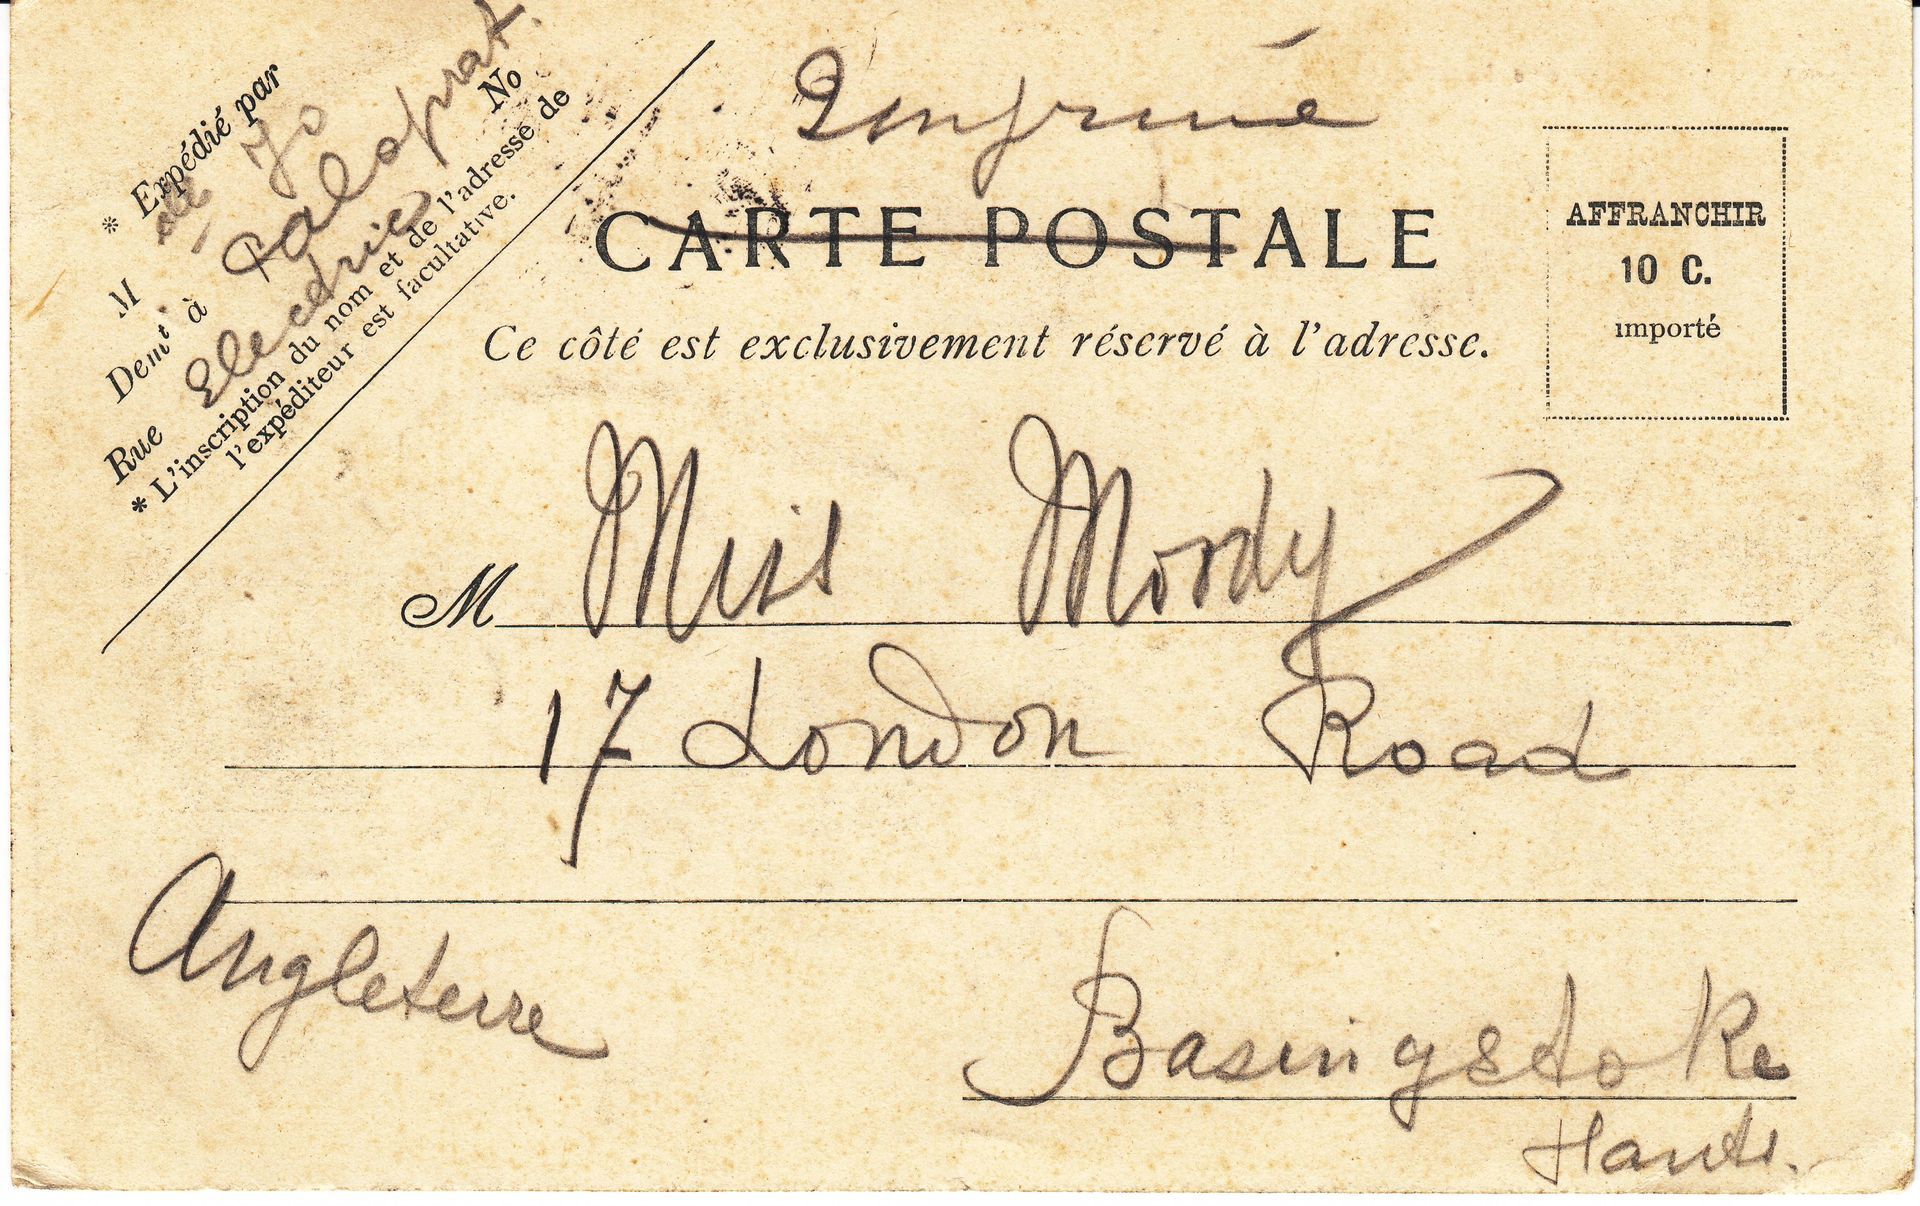 * Expédié par
M
Demt à
Rue No
* L'inscription du nom et de l'adresse de
l'expéditeur est facultative.
Imprimé
CARTE POSTALE
Ce côté est exclusivement réservé à l'adresse.
AFFRANCHIR
10 C.
importé
M Miss Moody
17 London Road
Angleterre
Basingstoke
Hants.